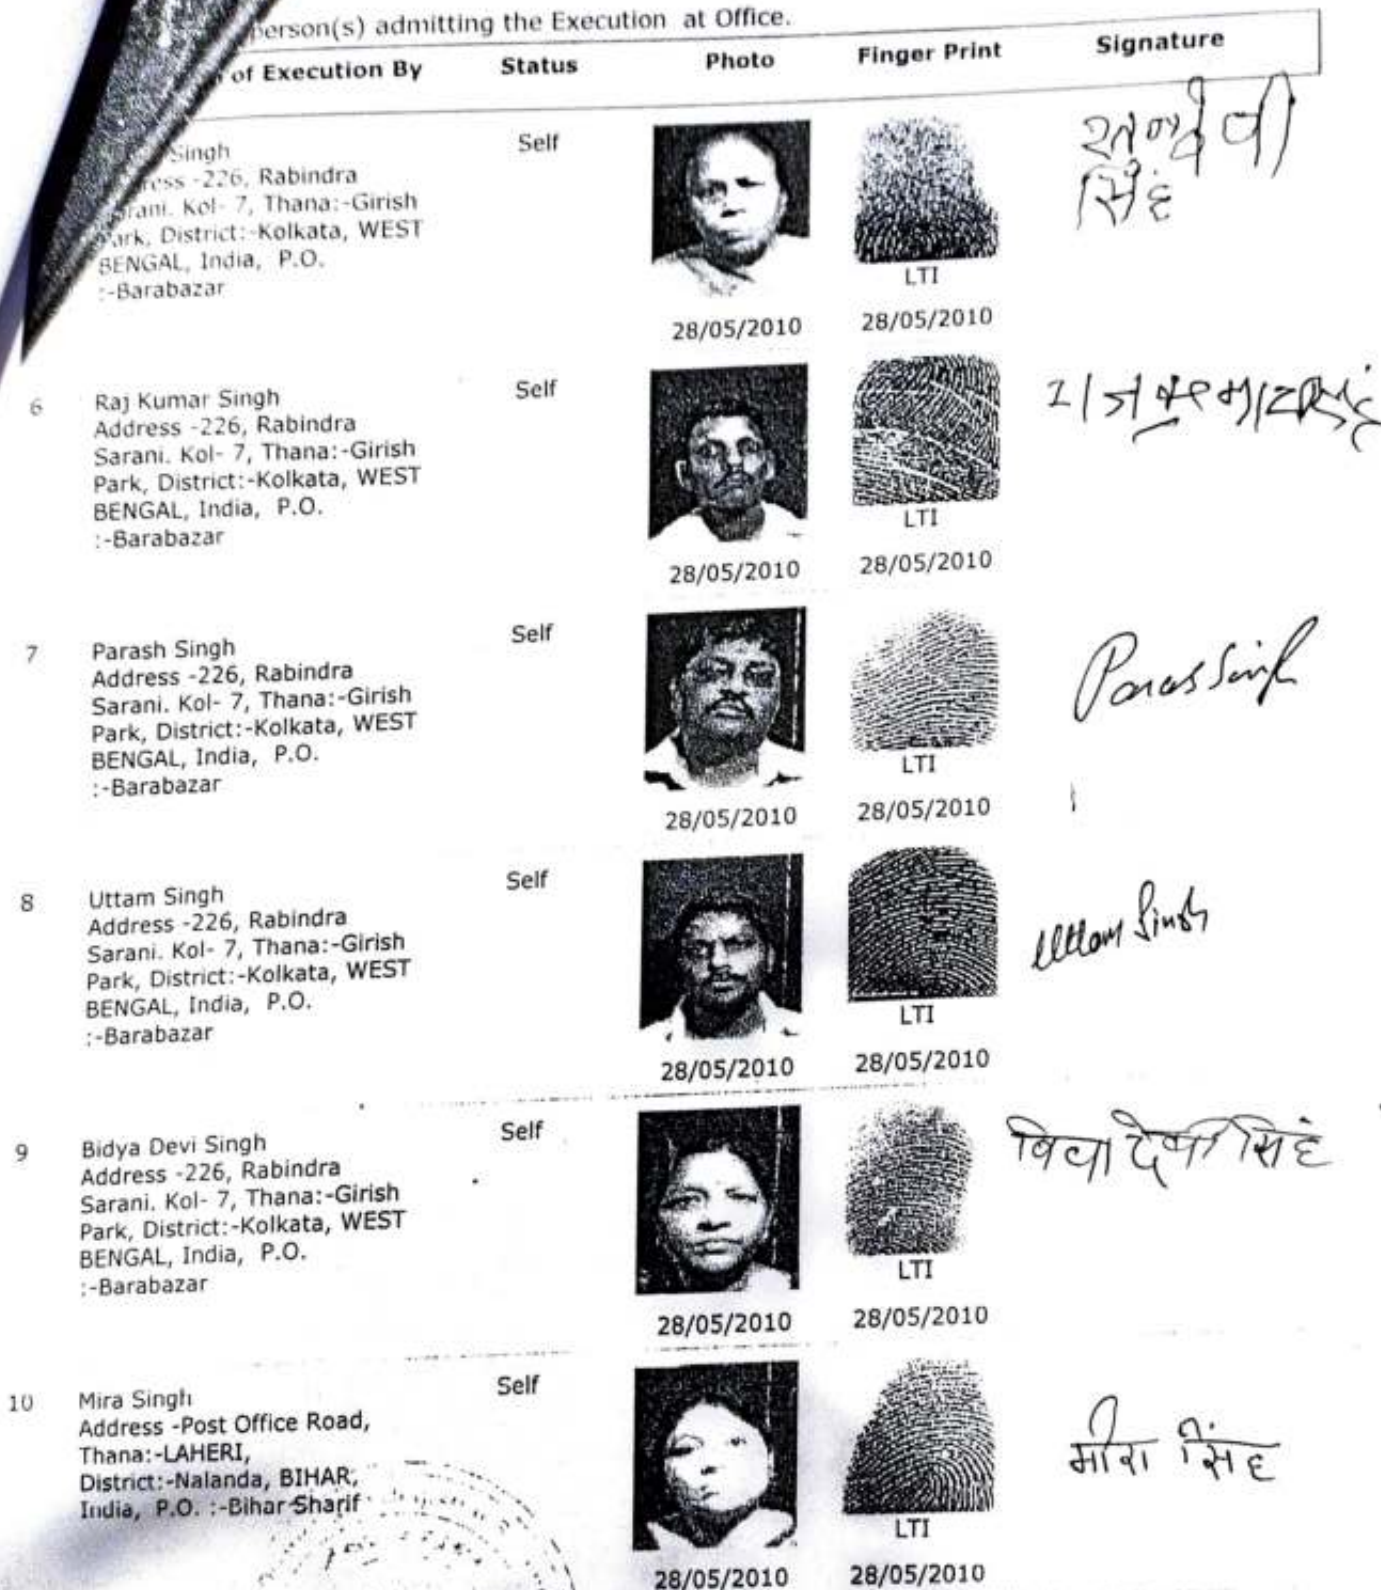 person(s) admitting the Execution at Office.
of Execution By Status Photo Finger Print Signature
Singh Self
-226, Rabindra
Kol- 7, Thana:-Girish
Park, District:-Kolkata, WEST
BENGAL, India, P.O.
:-Barabazar
सिंह
LTI
28/05/2010 28/05/2010
6 Raj Kumar Singh Self
Address -226, Rabindra
Sarani. Kol- 7, Thana:-Girish
Park, District:-Kolkata, WEST
BENGAL, India, P.O.
:-Barabazar
राजकुमार सिंह
LTI
28/05/2010 28/05/2010
7 Parash Singh Self
Address -226, Rabindra
Sarani. Kol- 7, Thana:-Girish
Park, District:-Kolkata, WEST
BENGAL, India, P.O.
:-Barabazar
Paras Singh
LTI
28/05/2010 28/05/2010
8 Uttam Singh Self
Address -226, Rabindra
Sarani. Kol- 7, Thana:-Girish
Park, District:-Kolkata, WEST
BENGAL, India, P.O.
:-Barabazar
Uttam Singh
LTI
28/05/2010 28/05/2010
9 Bidya Devi Singh Self
Address -226, Rabindra
Sarani. Kol- 7, Thana:-Girish
Park, District:-Kolkata, WEST
BENGAL, India, P.O.
:-Barabazar
विद्या देवी सिंह
LTI
28/05/2010 28/05/2010
10 Mira Singh Self
Address -Post Office Road,
Thana:-LAHERI,
District:-Nalanda, BIHAR,
India, P.O. :-Bihar Sharif
मीरा सिंह
LTI
28/05/2010 28/05/2010